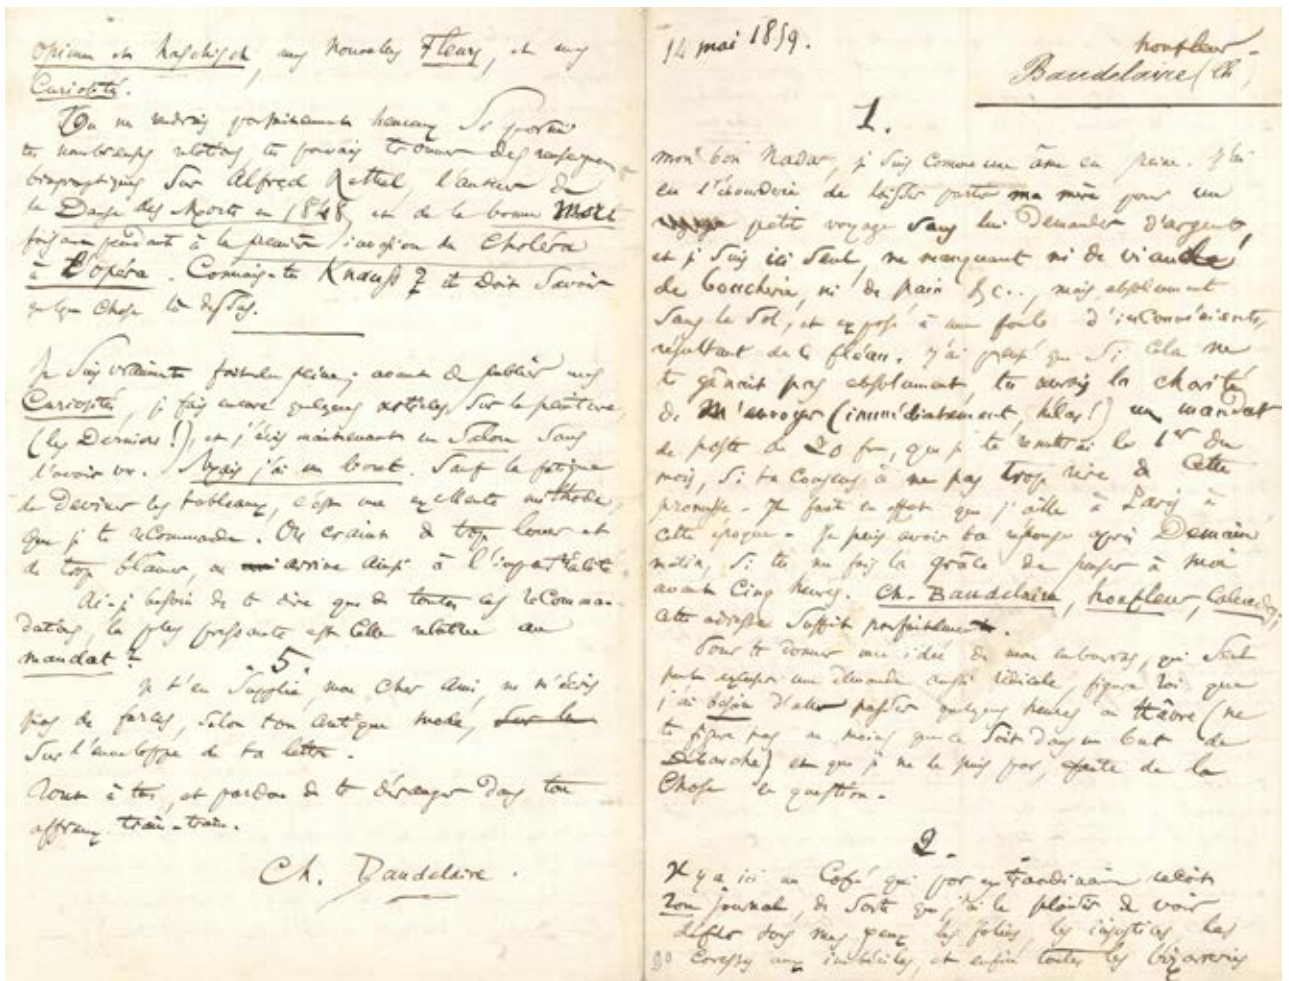 Opium et haschisch, mes nouvelles Fleurs, et mes
Curiosités.
Tu me rendrais parfaitement heureux si parmi
tes nombreuses relations tu pouvais trouver des renseignemen
biographiques sur Alfred Rethel, l'auteur de
la Danse des Morts en 1848, et de la bonne Mort
faisant pendant à la première invasion du Choléra
à l'opéra. Connais-tu Knauss ? il doit savoir
quelque chose là dessus.
Je suis vraiment fort en peine ; avant de publier mes
Curiosités, je fais encore quelques articles sur la peinture,
(les Derniers !), et j'écris maintenant un Salon sans
l'avoir vu. Mais j'ai un livret. Sauf la fatigue
de deviner les tableaux, c'est une excellente méthode,
que je te recommande. On craint de trop louer et
de trop blâmer, on arrive ainsi à l'impartialité.
Ai-je besoin de te dire que de toutes ces recomman-
dations, la plus pressante est celle relative au
mandat ?
5.
Je t'en supplie, mon cher ami, ne m'écris
pas de farces, selon ton antique mode, sur le
sur l'enveloppe de ta lettre.
Tout à toi, et pardon de te déranger dans ton
affreux train-train.
Ch. Baudelaire.
14 mai 1859.
honfleur -
Baudelaire (Ch)
1.
mon bon Nadar, je suis comme une âme en peine. J'ai
eu l'étourderie de laisser partir ma mère pour un
petit voyage sans lui demander d'argent,
et je suis ici seul, ne manquant ni de viande
de boucherie, ni de pain &c.., mais absolument
sans le sol, et exposé à une foule d'inconvénients,
résultant de ce fléau. J'ai pensé que si cela ne
te gênait pas absolument, tu aurais la charité
de m'envoyer (immédiatement, hélas !) un mandat
de poste de 20 fr, que je te remettrai le 1er du
mois, si tu consens à ne pas trop rire de cette
promesse. Il faut en effet que j'aille à Paris à
cette époque. Je puis avoir ta réponse après Demain
matin, si tu me fais la grâce de penser à moi
avant Cinq heures. Ch. Baudelaire, honfleur, Calvados,
cette adresse suffit parfaitement.
Pour te donner une idée de mon embarras, qui seul
peut excuser une demande aussi ridicule, figure-toi que
j'ai besoin d'aller passer quelques heures au Hâvre (ne
te figure pas au moins que ce soit dans un but de
Débauche) et que je ne le puis pas, faute de la
chose en question.
2.
Il y a ici un Café qui par extraordinaire reçoit
ton journal, de sorte que j'ai le plaisir de voir
défiler sous mes yeux les folies, les injustices, les
caresses aux imbéciles, et enfin toutes les bizarreries